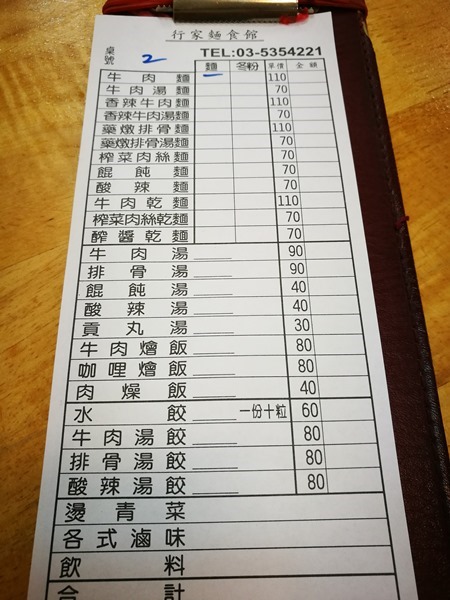 行家麵食館
TEL:03-5354221
桌號 2
麵 冬粉 單價 金額
牛肉麵 110
牛肉湯麵 70
香辣牛肉麵 110
香辣牛肉湯麵 70
藥燉排骨麵 110
藥燉排骨湯麵 70
榨菜肉絲麵 70
餛飩麵 70
酸辣麵 70
牛肉乾麵 110
榨菜肉絲乾麵 70
醡醬乾麵 70
牛肉湯 90
排骨湯 90
餛飩湯 40
酸辣湯 40
貢丸湯 30
牛肉燴飯 80
咖哩燴飯 80
肉燥飯 40
水餃 一份十粒 60
牛肉湯餃 80
排骨湯餃 80
酸辣湯餃 80
燙青菜
各式滷味
飲料
合計